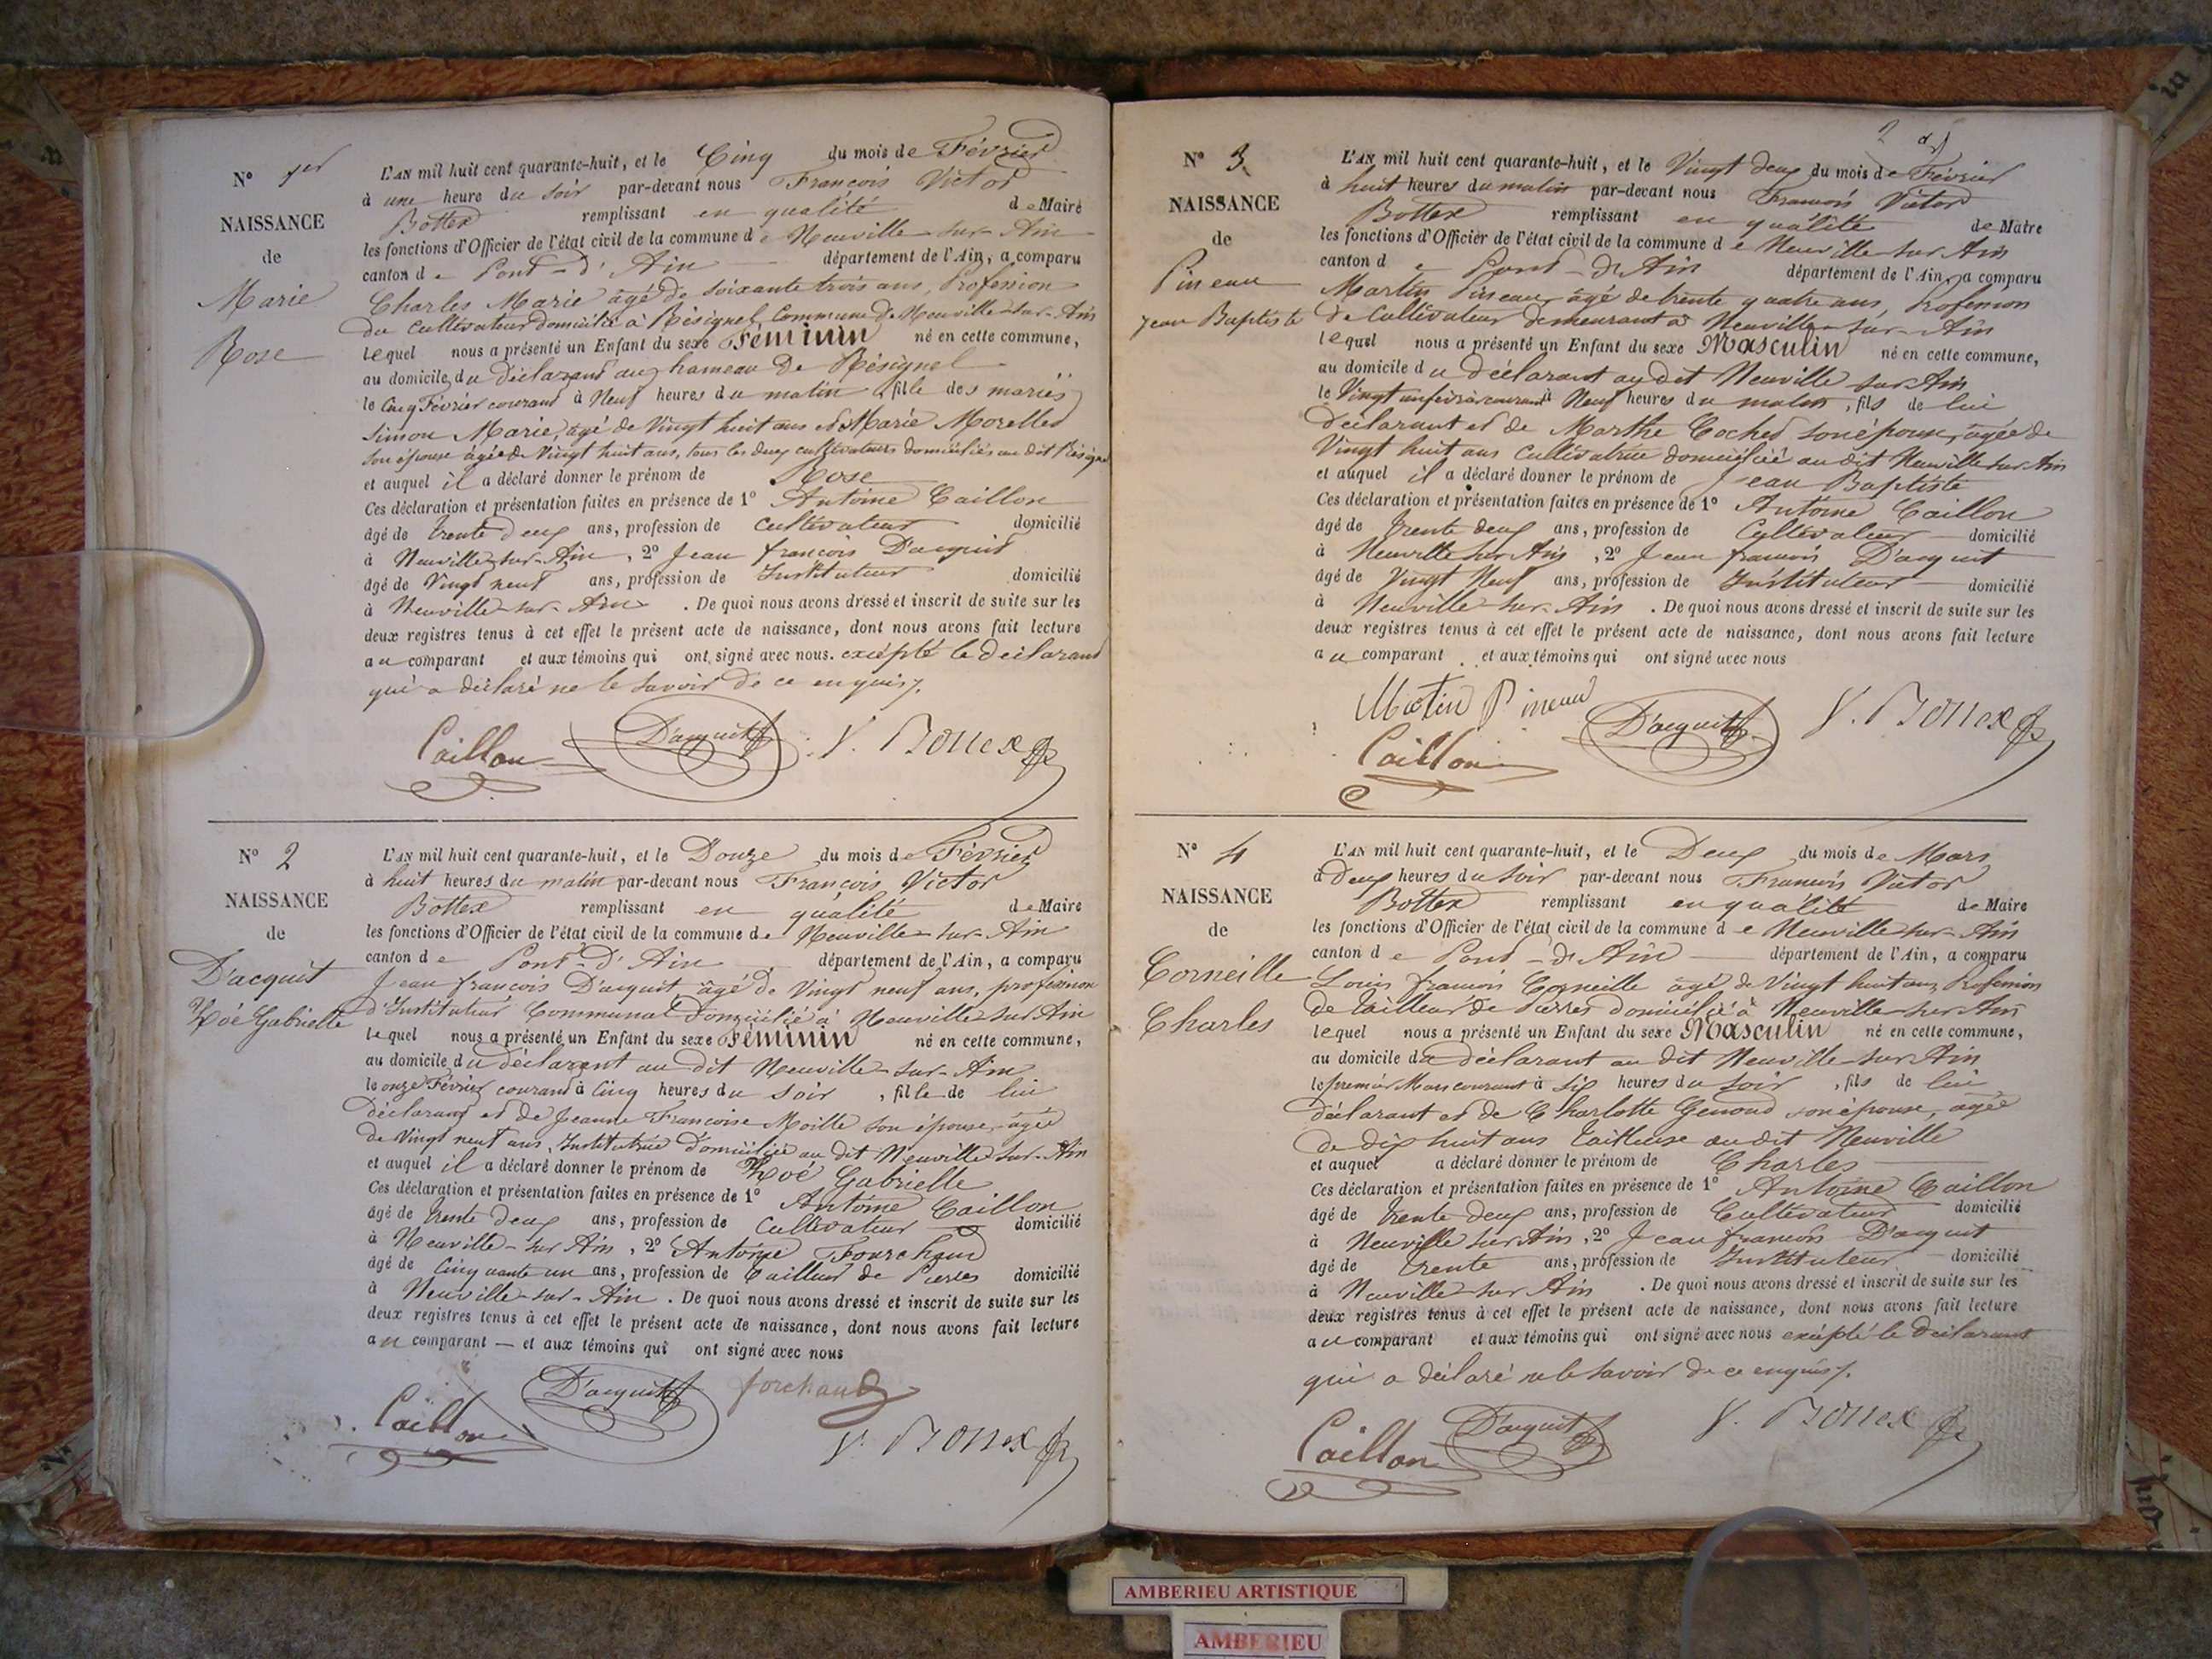 N° 1er
NAISSANCE
de
Marie
Rose
L'AN mil huit cent quarante-huit, et le Cinq du mois de Février
à une heure du soir par-devant nous François Victor
Bottex remplissant en qualité de Maire
les fonctions d'Officier de l'état civil de la commune de Neuville-sur-Ain
canton de Pont-d'Ain département de l'Ain, a comparu
Charles Marie âgé de soixante trois ans, Profession
de cultivateur domicilié à Résignel Commune de Neuville-sur-Ain
lequel nous a présenté un Enfant du sexe Féminin né en cette commune,
au domicile du déclarant au hameau De Résignel
le Cinq Février courant à Neuf heures du matin, fille des mariés
Simon Marie, âgé de Vingt huit ans et Marie Morellet
son épouse âgée de Vingt huit ans, tous les deux cultivateurs domiciliés au dit Résignel
et auquel il a déclaré donner le prénom de Rose
Ces déclaration et présentation faites en présence de 1° Antoine Caillon
âgé de trente deux ans, profession de cultivateur domicilié
à Neuville-sur-Ain, 2° Jean françois D'acquit
âgé de Vingt neuf ans, profession de Instituteur domicilié
à Neuville-sur-Ain. De quoi nous avons dressé et inscrit de suite sur les
deux registres tenus à cet effet le présent acte de naissance, dont nous avons fait lecture
au comparant et aux témoins qui ont signé avec nous. excépté le déclarant
qui a déclaré ne le savoir de ce enquis /.
Caillon D'acquit V. Bottex
N° 2
NAISSANCE
de
D'acquit
Zoé Gabrielle
L'AN mil huit cent quarante-huit, et le Douze du mois de Février
à huit heures du matin par-devant nous François Victor
Bottex remplissant en qualité de Maire
les fonctions d'Officier de l'état civil de la commune de Neuville-sur-Ain
canton de Pont-D'Ain département de l'Ain, a comparu
Jean françois D'acquit âgé de Vingt neuf ans, profession
d'Instituteur Communal Domicilié à Neuville sur Ain
lequel nous a présenté un Enfant du sexe Féminin né en cette commune,
au domicile du déclarant au dit Neuville-sur-Ain
le onze Février courant à Cinq heures du soir, fille de lui
déclarant et de Jeanne Françoise Moille son épouse, âgée
de Vingt neuf ans, Institutrice Domiciliée au dit Neuville sur-Ain
et auquel il a déclaré donner le prénom de Zoé Gabrielle
Ces déclaration et présentation faites en présence de 1° Antoine Caillon
âgé de trente deux ans, profession de Cultivateur domicilié
à Neuville-sur Ain, 2° Antoine Fourchaud
âgé de Cinquante un ans, profession de tailleur de Pierres domicilié
à Neuville-sur-Ain. De quoi nous avons dressé et inscrit de suite sur les
deux registres tenus à cet effet le présent acte de naissance, dont nous avons fait lecture
au comparant — et aux témoins qui ont signé avec nous
Caillon D'acquit forchaud
V. Bottex
2
N° 3
NAISSANCE
de
Pineau
Jean Baptiste
L'AN mil huit cent quarante-huit, et le Vingt deux du mois de Février
à huit heures du matin par-devant nous François Victor
Bottex remplissant en qualité de Maire
les fonctions d'Officier de l'état civil de la commune de Neuville sur Ain
canton de Pont-D'Ain département de l'Ain, a comparu
Martin Pineau, âgé de trente quatre ans, Profession
de Cultivateur demeurant à Neuville-sur-Ain
lequel nous a présenté un Enfant du sexe Masculin né en cette commune,
au domicile du déclarant au dit Neuville sur Ain
le Vingt un février courant à Neuf heures du matin, fils de lui
déclarant et de Marthe Cochet son épouse, âgée de
Vingt huit ans Cultivatrice domiciliée au dit Neuville sur Ain
et auquel il a déclaré donner le prénom de Jean Baptiste
Ces déclaration et présentation faites en présence de 1° Antoine Caillon
âgé de trente deux ans, profession de Cultivateur domicilié
à Neuville sur Ain, 2° Jean françois D'acquit
âgé de Vingt Neuf ans, profession de Instituteur domicilié
à Neuville-sur-Ain. De quoi nous avons dressé et inscrit de suite sur les
deux registres tenus à cet effet le présent acte de naissance, dont nous avons fait lecture
au comparant et aux témoins qui ont signé avec nous
Martin Pineau D'acquit V. Bottex
Caillon
N° 4
NAISSANCE
de
Corneille
Charles
L'AN mil huit cent quarante-huit, et le Deux du mois de Mars
à Deux heures du Soir par-devant nous François Victor
Bottex remplissant en qualité de Maire
les fonctions d'Officier de l'état civil de la commune de Neuville sur-Ain
canton de Pont-D'Ain département de l'Ain, a comparu
Louis françois Corneille âgé de Vingt huit ans, Profession
de tailleur de Pierres domicilié à Neuville-sur Ain
lequel nous a présenté un Enfant du sexe Masculin né en cette commune,
au domicile du déclarant au dit Neuville sur Ain
le premier Mars courant à six heures du soir, fils de lui
déclarant et de Charlotte Genoud son épouse, âgée
de dix huit ans tailleuse au dit Neuville
et auquel a déclaré donner le prénom de Charles
Ces déclaration et présentation faites en présence de 1° Antoine Caillon
âgé de trente deux ans, profession de Cultivateur domicilié
à Neuville sur Ain, 2° Jean françois D'acquit
âgé de trente ans, profession de Instituteur domicilié
à Neuville sur Ain. De quoi nous avons dressé et inscrit de suite sur les
deux registres tenus à cet effet le présent acte de naissance, dont nous avons fait lecture
au comparant et aux témoins qui ont signé avec nous excépté le déclarant
qui a déclaré ne le savoir de ce enquis /.
Caillon D'acquit V. Bottex
AMBERIEU ARTISTIQUE
AMBERIEU